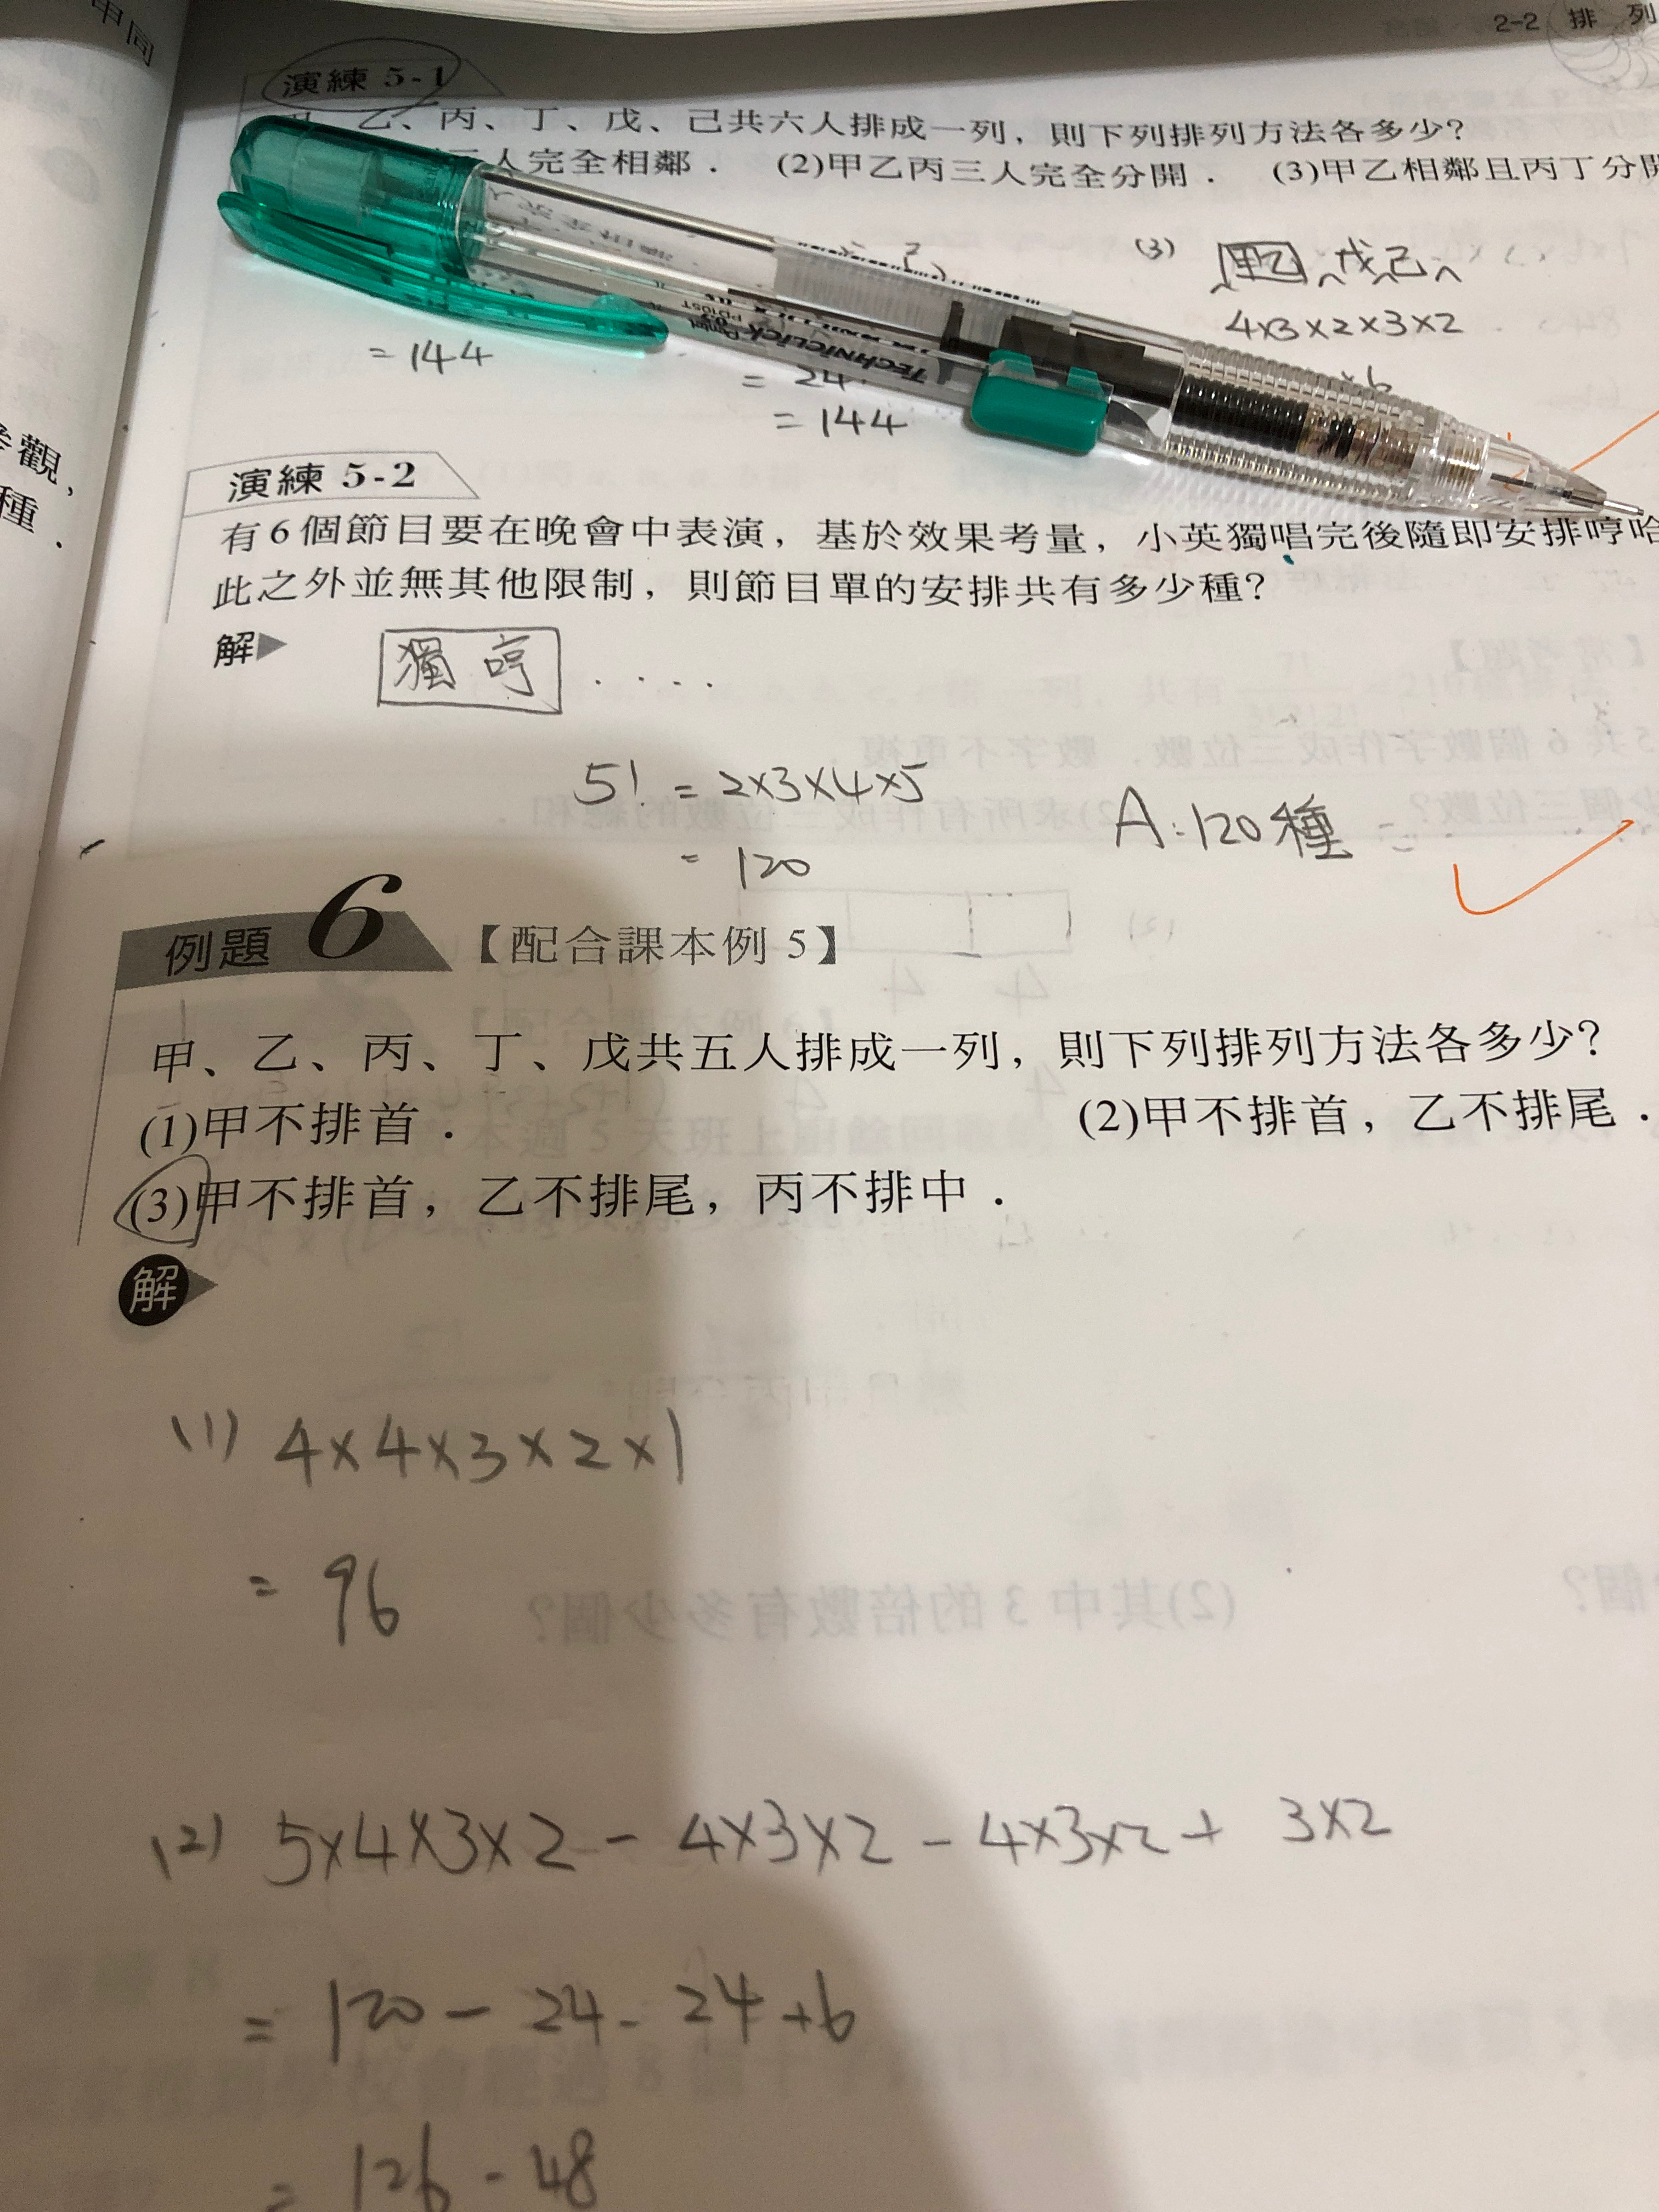 2-2 排 列
演練 5-1
乙、丙、丁、戊、己共六人排成一列，則下列排列方法各多少？
人完全相鄰． (2)甲乙丙三人完全分開． (3)甲乙相鄰且丙丁分開
(3) 甲乙 戊 己
4×3×2×3×2
×6
= 144
= 24
= 144
Pentel
PD105T
TECHNICLICK
觀，
種．
演練 5-2
有6個節目要在晚會中表演，基於效果考量，小英獨唱完後隨即安排哼哈
此之外並無其他限制，則節目單的安排共有多少種？
解 獨 哼 . . . .
5! = 2×3×4×5
= 120
A：120種
例題 6 【配合課本例 5】
甲、乙、丙、丁、戊共五人排成一列，則下列排列方法各多少？
(1)甲不排首． (2)甲不排首，乙不排尾．
(3)甲不排首，乙不排尾，丙不排中．
解
(1) 4×4×3×2×1
= 96
(2) 5×4×3×2 - 4×3×2 - 4×3×2 + 3×2
= 120 - 24 - 24 + 6
= 126 - 48